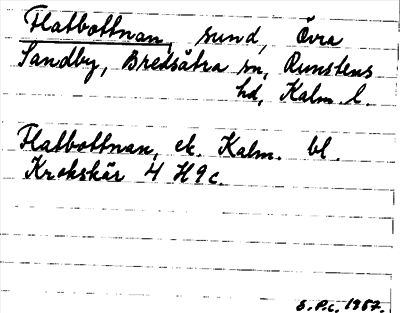 Flatbottnan, sund, Övra
Sandby, Bredsätra sn, Runstens
hd, Kalm. l.
Flatbottnan, ek. Kalm. bl.
Krokskär 4 H 9 c.
S.P.c. 1957.